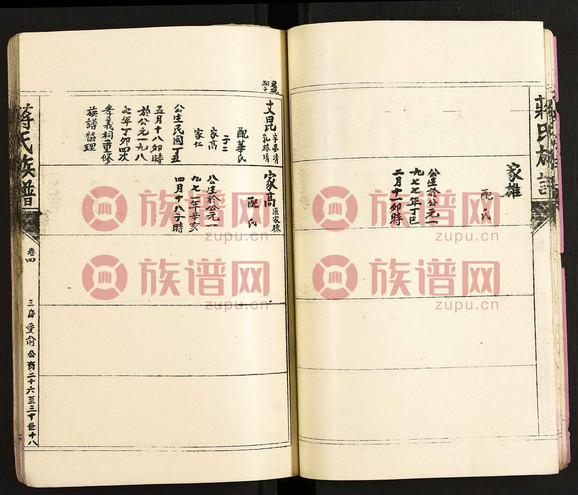 蒋氏族譜
家雄
配 氏
公生於公元一
九七七年丁巳
二月十一卯時
文昆
配華氏
子二
家高
家仁
公生民國丁丑
五月十八卯時
於公元一九八
七年丁卯四次
孝義祠重修
族譜督理
家高
配 氏
公生於公元一
九七一年辛亥
四月十八丁時
蒋氏族譜
卷四
三房受前公裔二十六至三十世十八
族谱网
zupu.cn
族谱网
zupu.cn
族谱网
zupu.cn
族谱网
zupu.cn
族谱网
zupu.cn
族谱网
zupu.cn